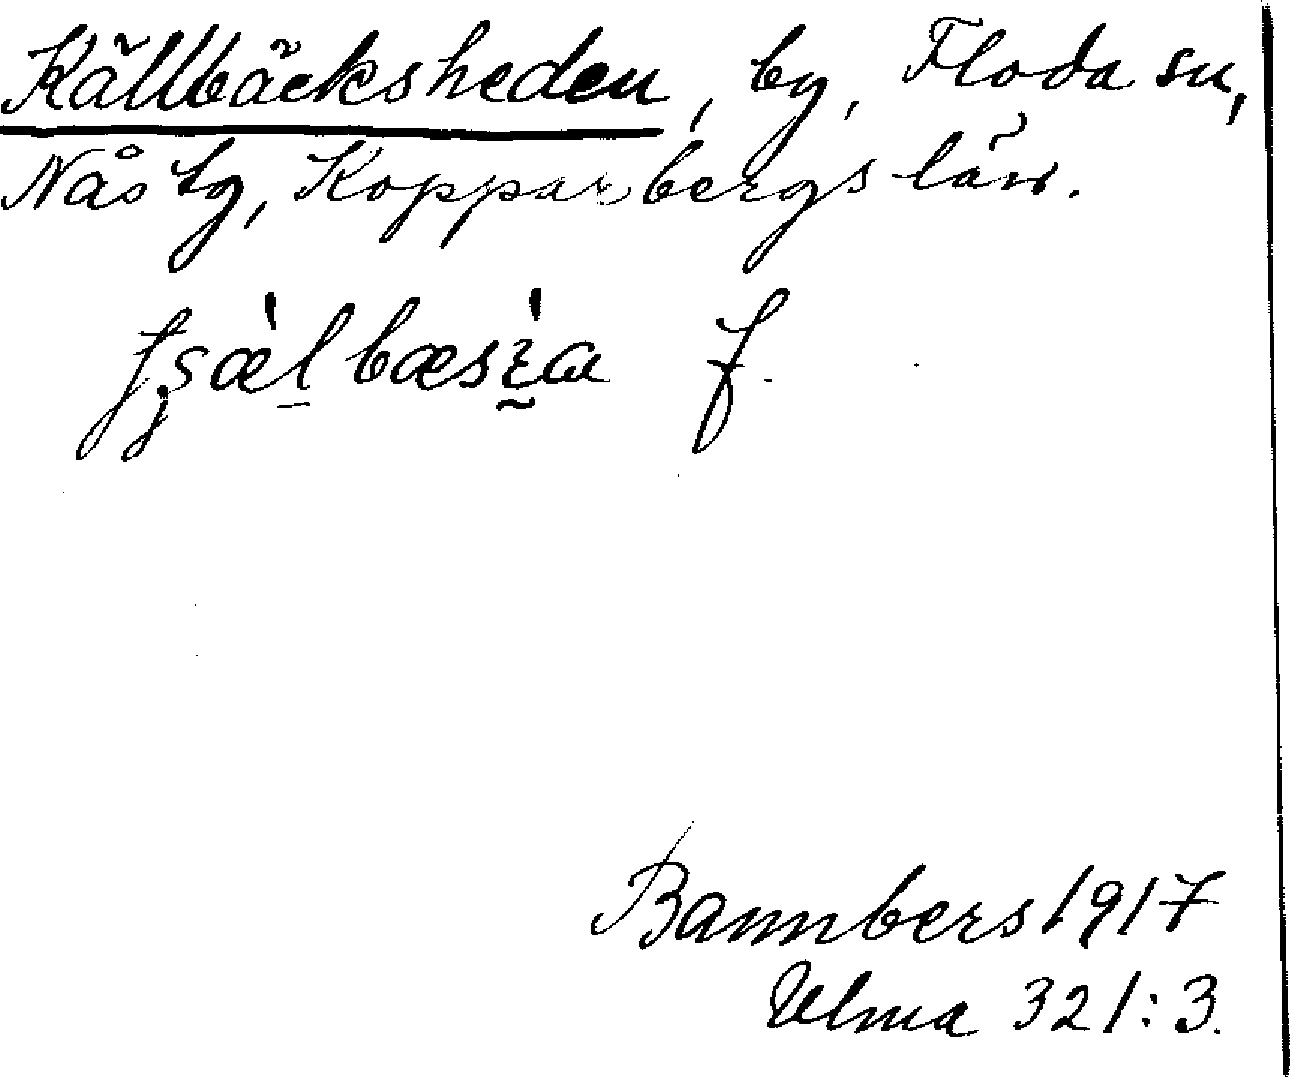 Källbäcksheden, by, Floda sn,
Nås tg, Kopparbergs län.
f.
Bannbers 1917
Ulma 321:3.